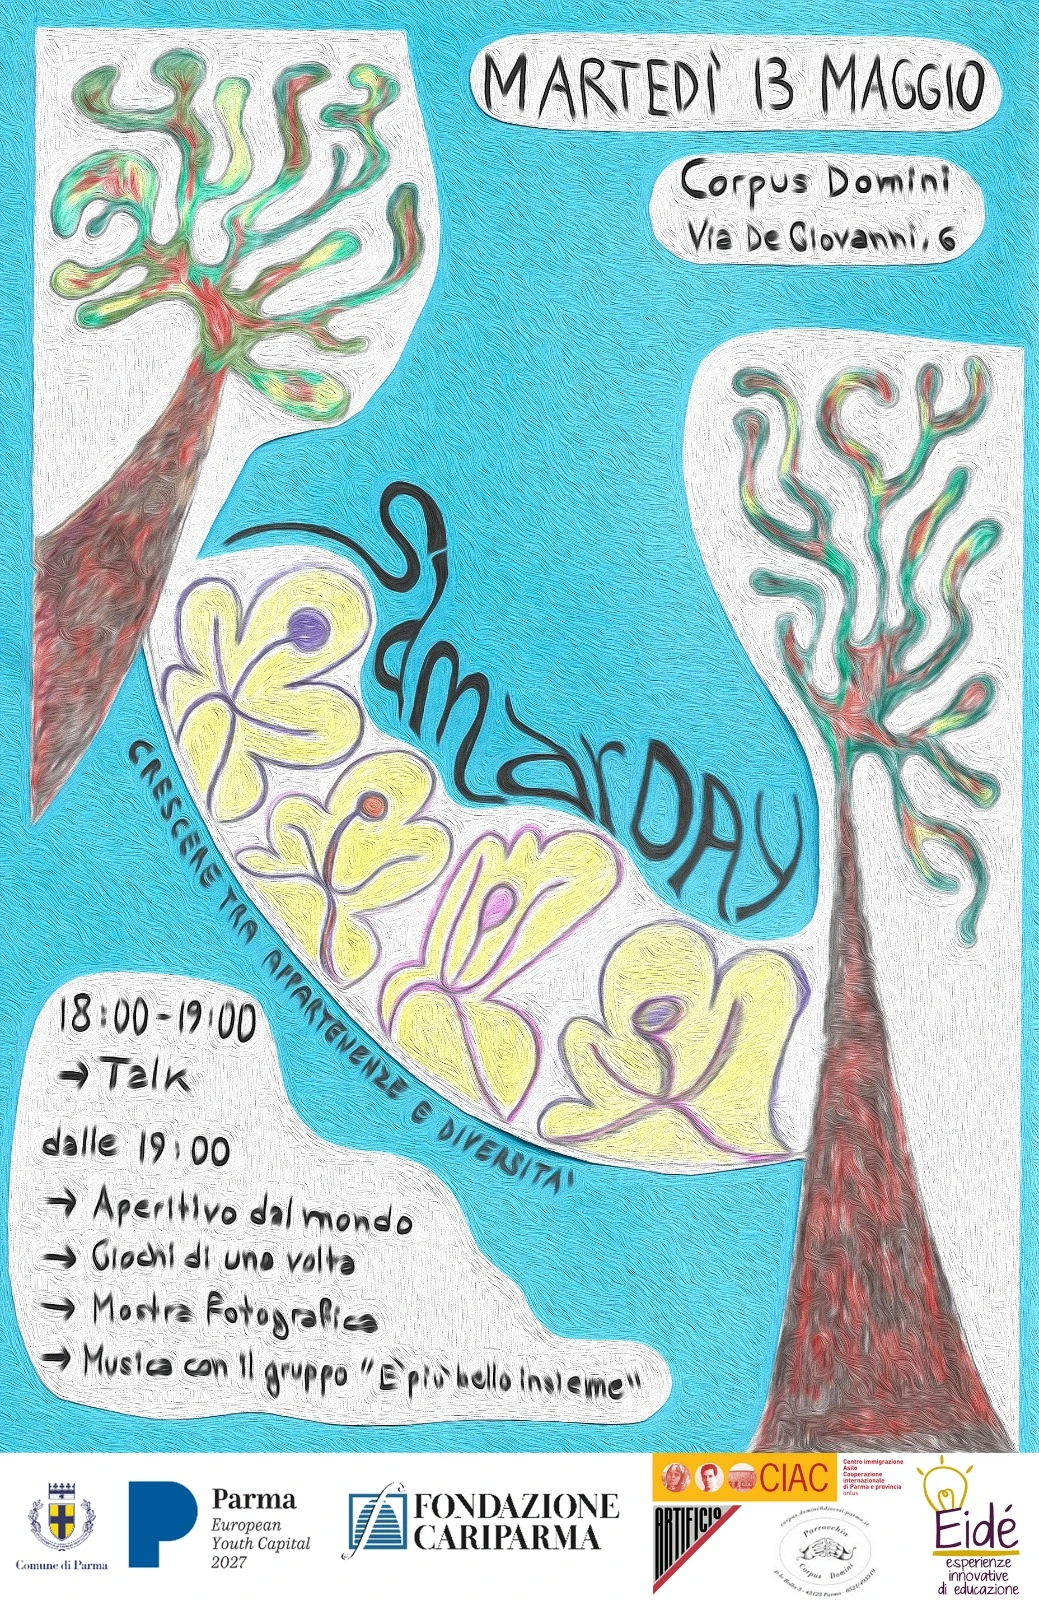 MARTEDÌ 13 MAGGIO
Corpus Domini
Via De Giovanni, 6
SìamarDAY
CRESCERE TRA APPARTENENZE E DIVERSITA'
18:00-19:00
→ Talk
dalle 19:00
→ Aperitivo dal mondo
→ Giochi di una volta
→ Mostra Fotografica
→ Musica con il gruppo "E' più bello insieme"
Comune di Parma
Parma
European
Youth Capital
2027
FONDAZIONE
CARIPARMA
CIAC
Centro immigrazione
Asilo
Cooperazione
internazionale
di Parma e provincia
onlus
ARTIFICIO
Parrocchia
Corpus Domini
Eidé
esperienze
innovative
di educazione